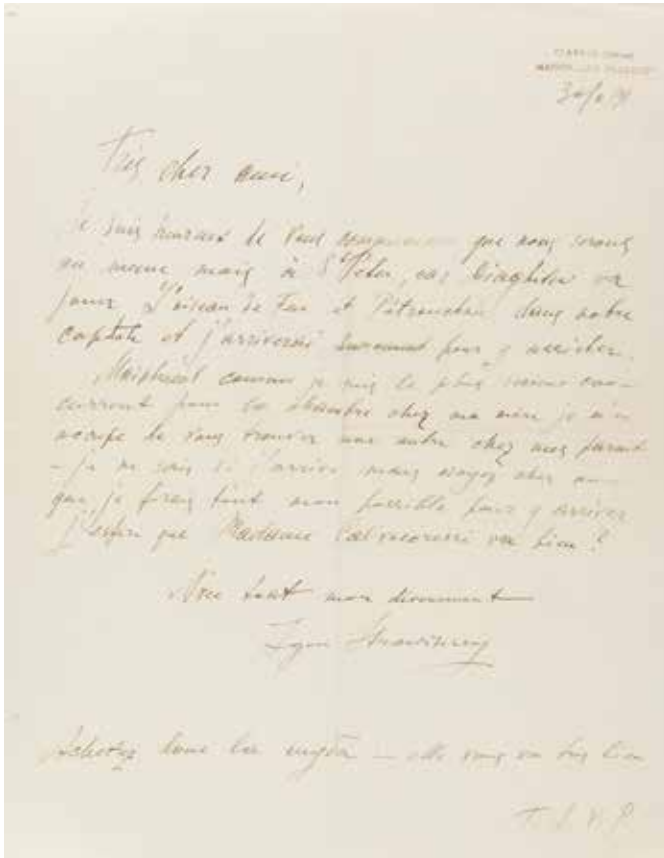 Très cher ami,
Je suis heureux de vous que nous serons
au même mais à S Peter, car Diaghilew va
jouer L'oiseau de Feu et Pétrouchka dans notre
capitale et j'arriverai surement pour y assister.
Maintenant comme je suis le plus sérieux con-
current pour la chambre chez ma mère je m'
occupe de vous trouver une autre chez mes parents
- je ne sais si j'arrive mais soyez cher
que je ferai tout mon possible pour y arriver
J'espère que Madame Calvocoressi va bien?
Avec tout mon dévouement
Igor Strawinsky
Achetez - elle vous va très bien
T. S. V. P.